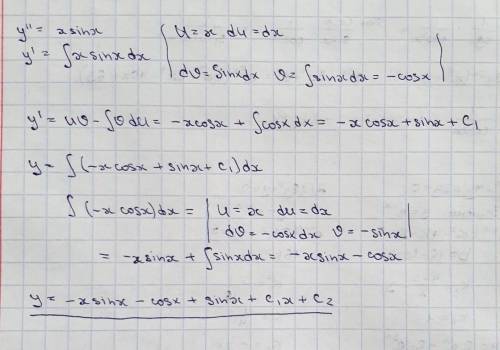 y'' = x sinx
y' = ∫x sinx dx | u = x du = dx
dv = sinxdx v = ∫sinxdx = -cosx |
y' = uv - ∫v du = -x cosx + ∫cosx dx = -x cosx + sinx + C₁
y = ∫(-x cosx + sinx + C₁)dx
∫(-x cosx)dx = | u = x du = dx
dv = -cosx dx v = -sinx |
= -x sinx + ∫sinxdx = -x sinx - cosx
y = -x sinx - cosx + sin²x + C₁x + C₂